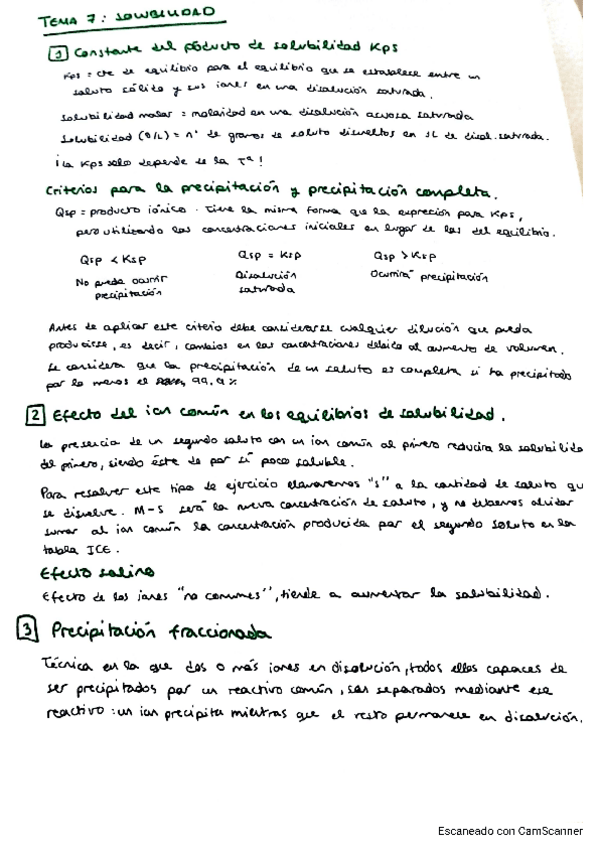 TEMA 7: SOLUBILIDAD
1 Constante del producto de solubilidad Kps
Kps = cte de equilibrio para el equilibrio que se establece entre un
soluto sólido y sus iones en una disolución saturada.
Solubilidad molar = molaridad en una disolución acuosa saturada
Solubilidad (g/L) = nº de gramos de soluto disueltos en 1L de disol. saturada.
¡La Kps solo depende de la Tª!
Criterios para la precipitación y precipitación completa.
Qsp = producto iónico. Tiene la misma forma que la expresión para Kps,
pero utilizando las concentraciones iniciales en lugar de las del equilibrio.
Qsp < Ksp Qsp = Ksp Qsp > Ksp
No puede ocurrir Disolución Ocurrirá precipitación
precipitación saturada
Antes de aplicar este criterio debe considerarse cualquier dilución que pueda
producirse, es decir, cambios en las concentraciones debido al aumento de volumen.
Se considera que la precipitación de un soluto es completa si ha precipitado
por lo menos el 99.9%
2 Efecto del ion común en los equilibrios de solubilidad.
La presencia de un segundo soluto con un ion común al primero reducirá la solubilida
del primero, siendo éste de por sí poco soluble.
Para resolver este tipo de ejercicio llamaremos "s" a la cantidad de soluto qu
se disuelve. M-S será la nueva concentración de soluto, y no debemos olvidar
sumar al ion común la concentración producida por el segundo soluto en la
tabla ICE.
Efecto salino
Efecto de los iones "no comunes", tiende a aumentar la solubilidad.
3 Precipitación fraccionada
Técnica en la que dos o más iones en disolución, todos ellos capaces de
ser precipitados por un reactivo común, son separados mediante ese
reactivo: un ion precipita mientras que el resto permanece en disolución.
Escaneado con CamScanner